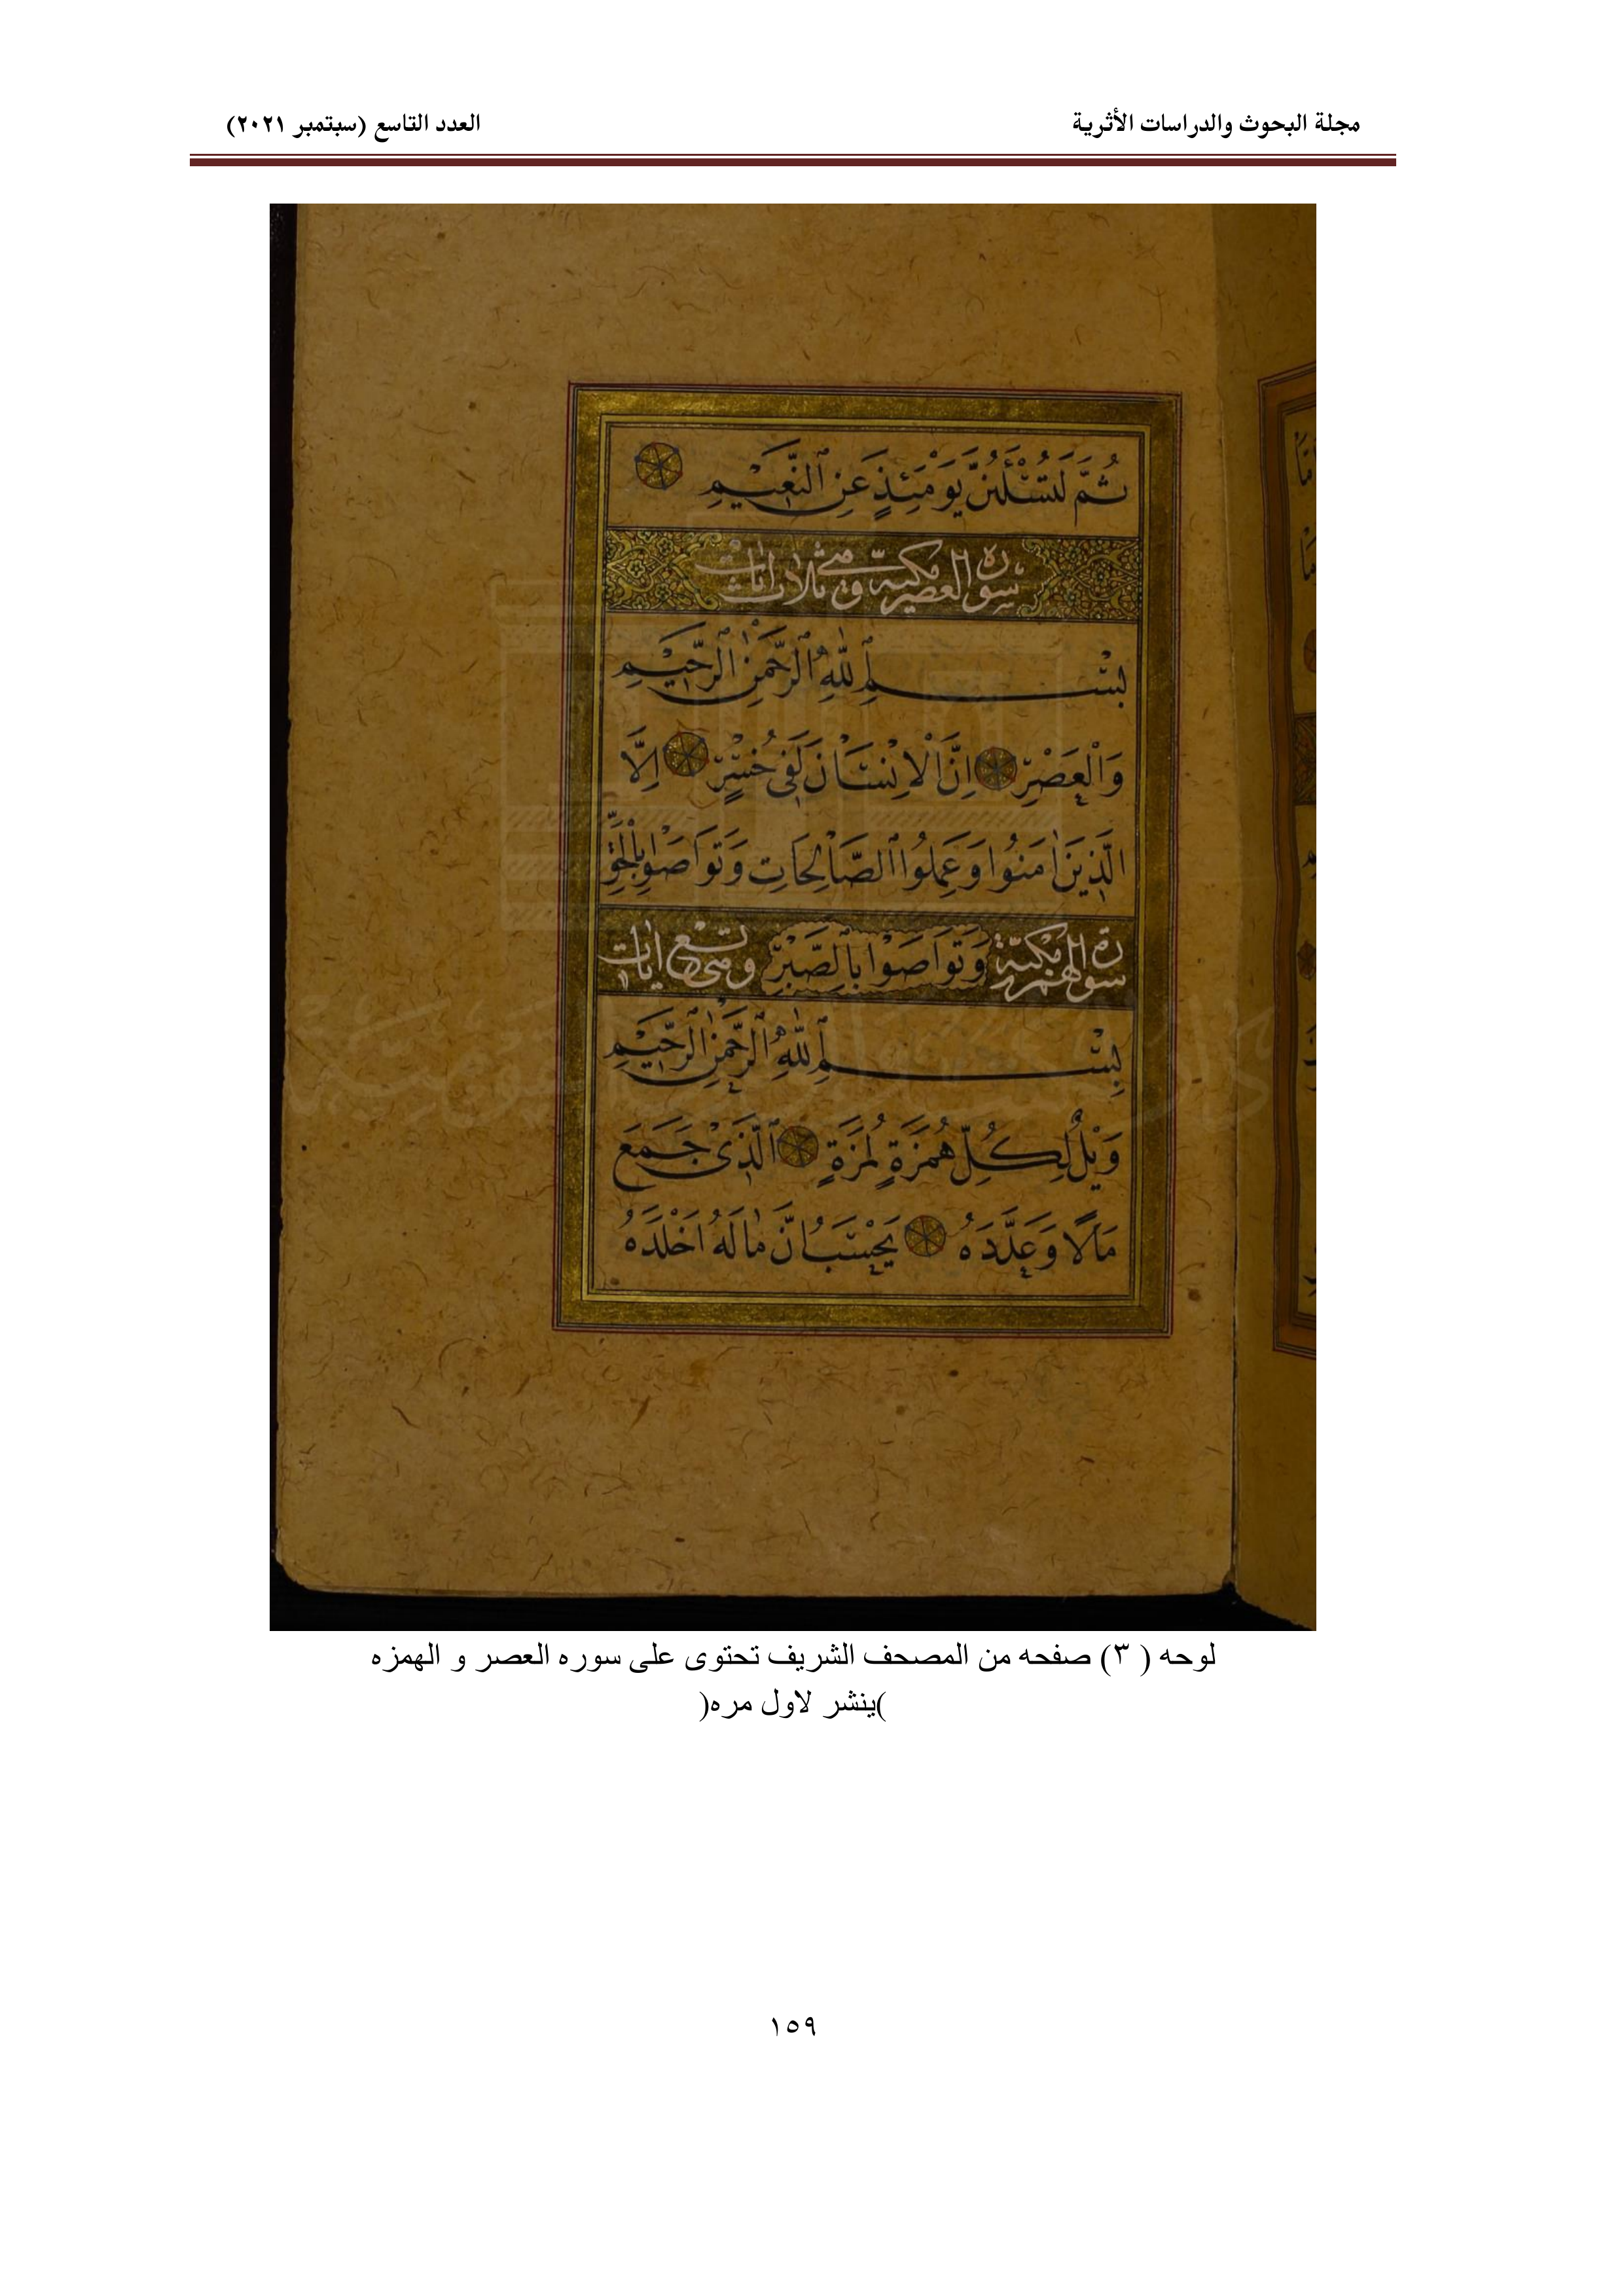 مجلة البحوث والدراسات الأثرية
العدد التاسع (سبتمبر ٢٠٢١)
ثُمَّ لَتُسْئَلُنَّ يَوْمَئِذٍ عَنِ ٱلنَّعِيْمِ
سورة العصر مكية وهي ثلاث ايات
بِسْمِ ٱللّٰهِ ٱلرَّحْمٰنِ ٱلرَّحِيْمِ
وَالْعَصْرِ اِنَّ الْاِنْسَانَ لَفِى خُسْرٍ اِلَّا
الَّذِينَ اٰمَنُوا وَعَمِلُوا ٱلصَّالِحَاتِ وَتَوَاصَوْا بِالْحَقِّ
سورة الهمزة مكية وَتَوَاصَوْا بِٱلصَّبْرِ وهي تسع ايات
بِسْمِ ٱللّٰهِ ٱلرَّحْمٰنِ ٱلرَّحِيْمِ
وَيْلٌ لِكُلِّ هُمَزَةٍ لُمَزَةٍ ٱلَّذِىْ جَمَعَ
مَالًا وَعَدَّدَهُ يَحْسَبُ اَنَّ مَالَهُ اَخْلَدَهُ
لوحه ( ٣) صفحه من المصحف الشريف تحتوى على سوره العصر و الهمزه
)ينشر لاول مره(
١٥٩